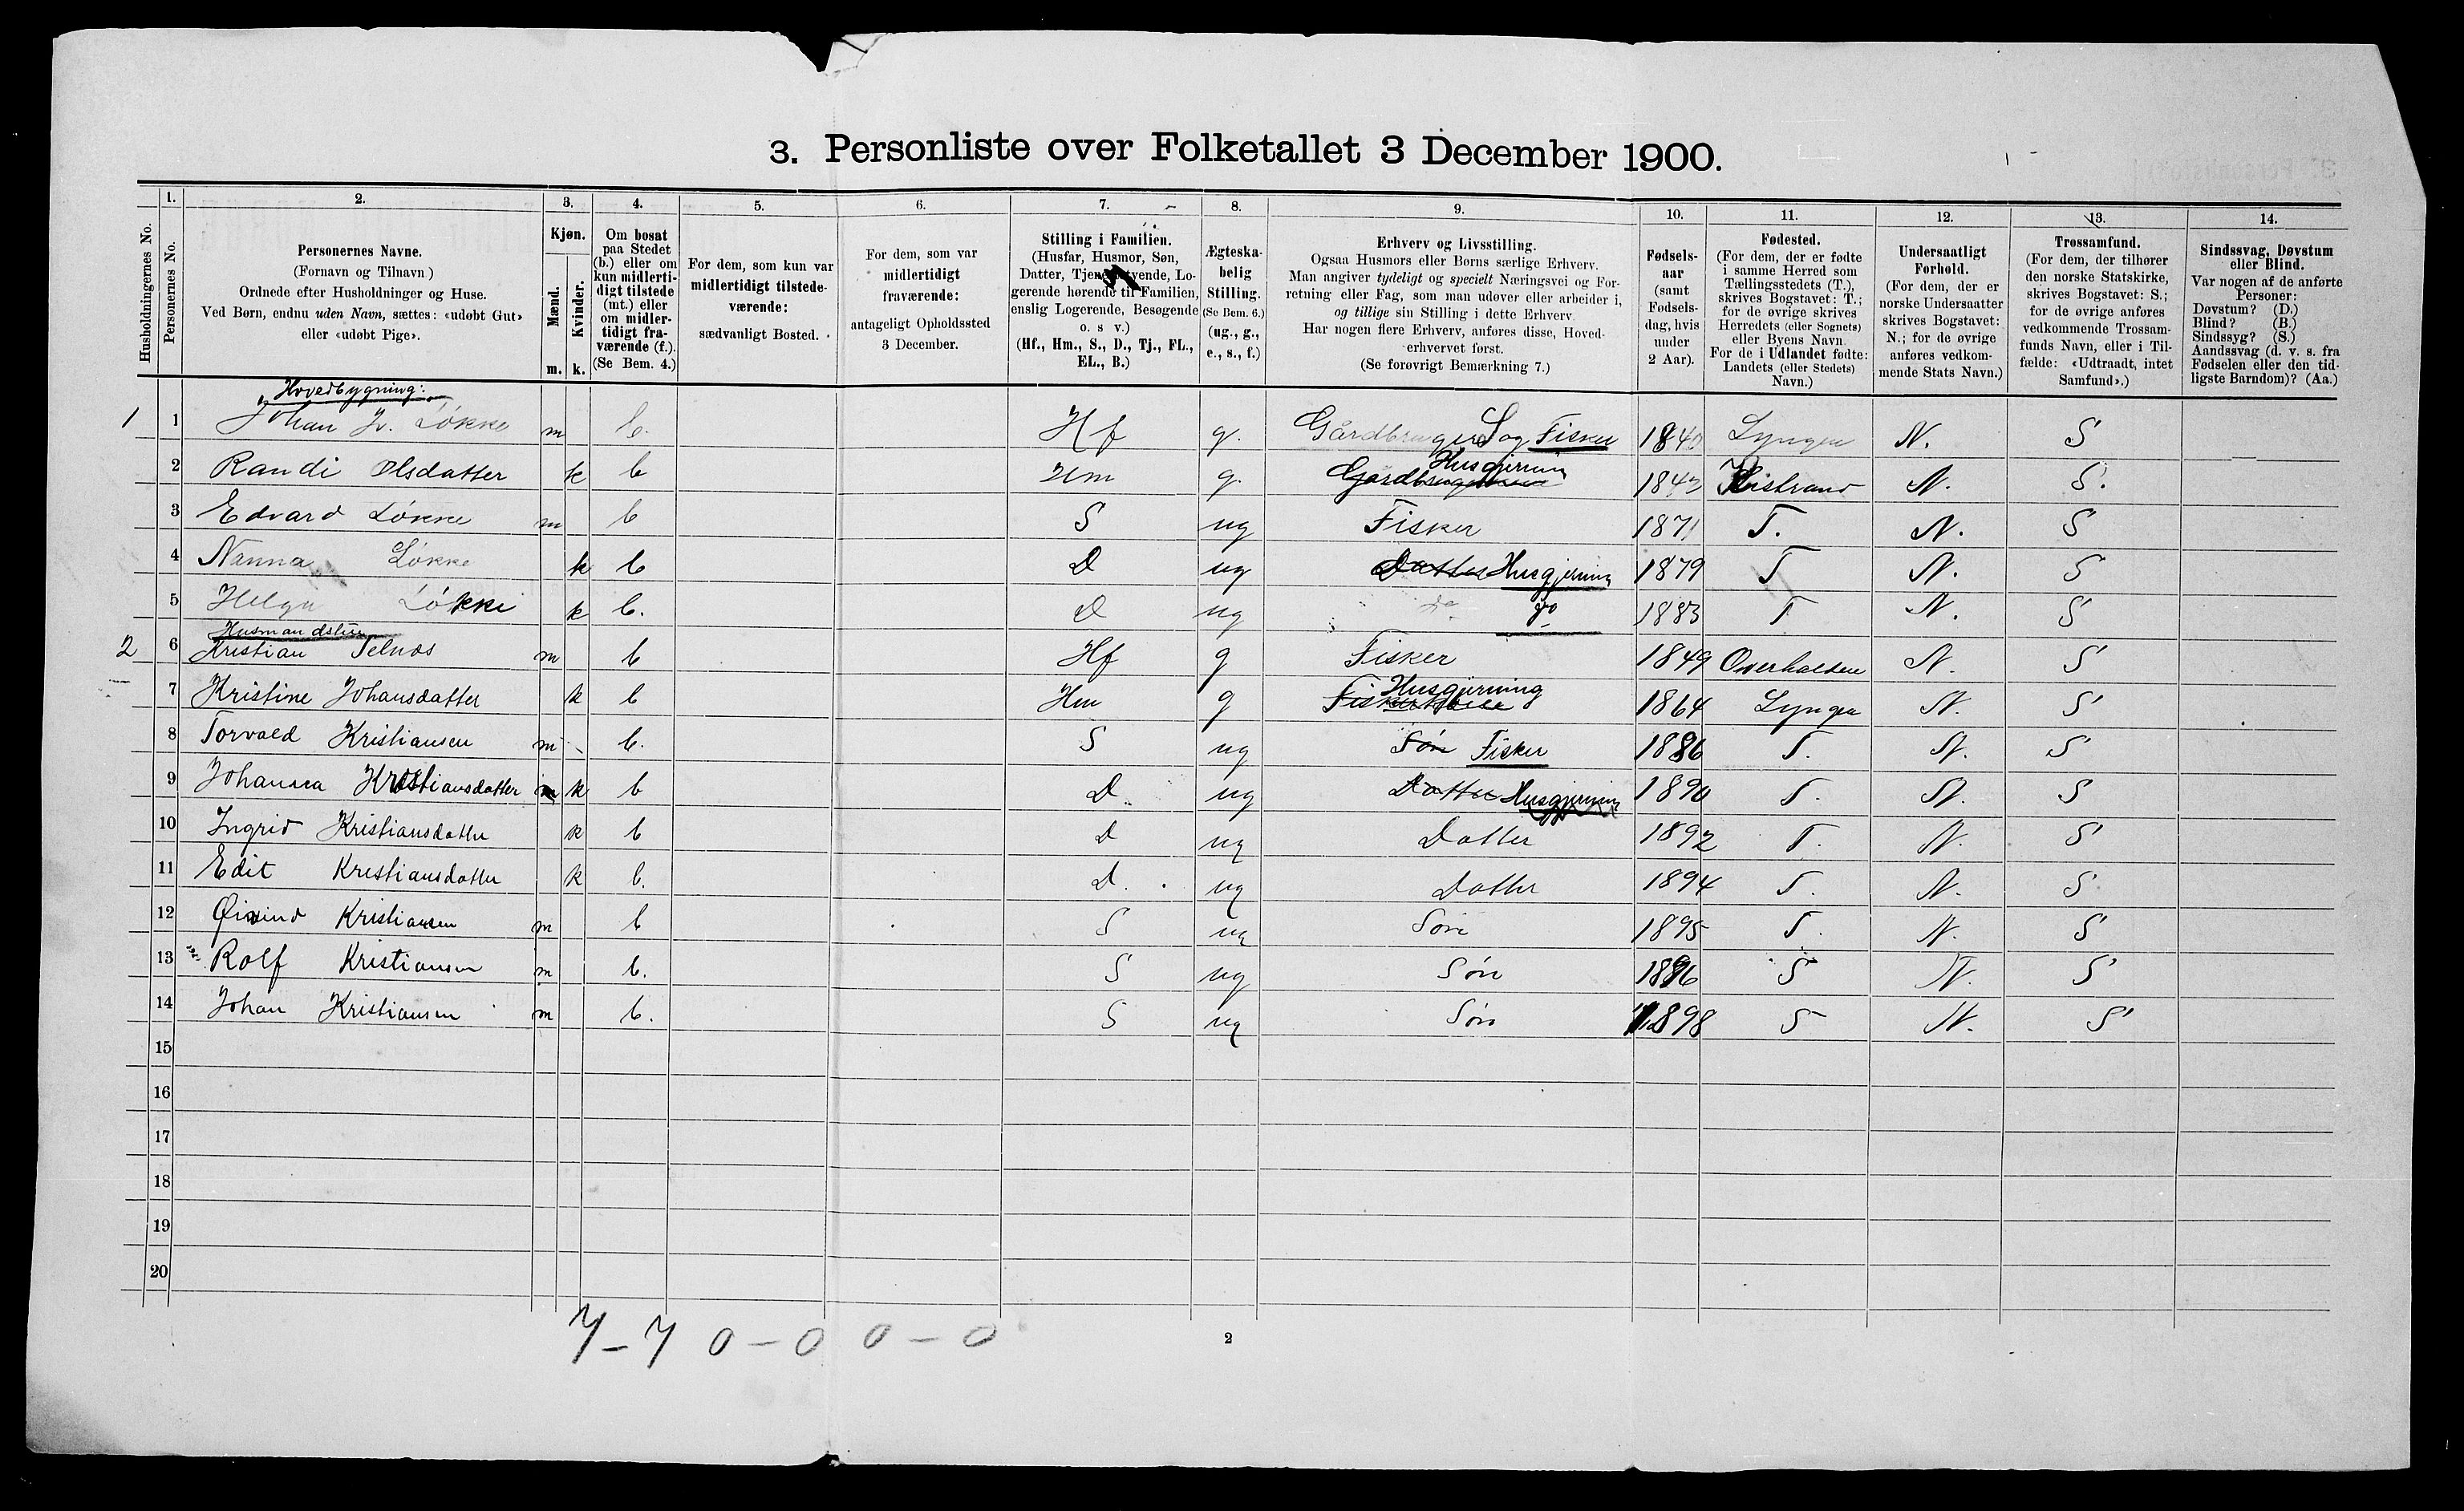 3. Personliste over Folketallet 3 December 1900.
Husholdningernes No.
1. Personernes No.
2. Personernes Navne.
(Fornavn og Tilnavn)
Ordnede efter Husholdninger og Huse.
Ved Børn, endnu uden Navn, sættes: «udøbt Gut»
eller «udøbt Pige».
3. Kjøn.
Mænd. m.
Kvinder. k.
4. Om bosat
paa Stedet
(b.) eller om
kun midlerti-
digt tilstede
(mt.) eller
om midler-
tidigt fra-
værende (f.).
(Se Bem. 4.)
5. For dem, som kun var
midlertidigt tilstede-
værende:
sædvanligt Bosted.
6. For dem, som var
midlertidigt
fraværende:
antageligt Opholdssted
3 December.
7. Stilling i Familien.
(Husfar, Husmor, Søn,
Datter, Tjenestetyende, Lo-
gerende hørende til Familien,
enslig Logerende, Besøgende
o. s v.)
(Hf., Hm., S., D., Tj., FL.,
EL., B.)
8. Ægteska-
belig
Stilling.
(Se Bem. 6.)
(ug., g.,
e., s., f.)
9. Erhverv og Livsstilling.
Ogsaa Husmors eller Børns særlige Erhverv.
Man angiver tydeligt og specielt Næringsvei og For-
retning eller Fag, som man udøver eller arbeider i,
og tillige sin Stilling i dette Erhverv.
Har nogen flere Erhverv, anføres disse, Hoved-
erhvervet først.
(Se forøvrigt Bemærkning 7.)
10. Fødsels-
aar
(samt
Fødsels-
dag, hvis
under
2 Aar).
11. Fødested.
(For dem, der er fødte
i samme Herred som
Tællingsstedets (T.),
skrives Bogstavet: T.;
for de øvrige skrives
Herredets (eller Sognets)
eller Byens Navn.
For de i Udlandet fødte:
Landets (eller Stedets)
Navn.)
12. Undersaatligt
Forhold.
(For dem, der er
norske Undersaatter
skrives Bogstavet:
N.; for de øvrige
anføres vedkom-
mende Stats Navn.)
13. Trossamfund.
(For dem, der tilhører
den norske Statskirke,
skrives Bogstavet: S.;
for de øvrige anføres
vedkommende Trossam-
funds Navn, eller i Til-
fælde: «Udtraadt, intet
Samfund».)
14. Sindssvag, Døvstum
eller Blind.
Var nogen af de anførte
Personer:
Døvstum? (D.)
Blind? (B.)
Sindssyg? (S.)
Aandssvag (d. v. s. fra
Fødselen eller den tid-
ligste Barndom)? (Aa.)
Hovedbygning:
1 1 Johan Løkke m b. Hf g. Gårdbruger S og Fisker Lyngen N. S
2 Randi Olsdatter k b Hm g. Gårdbrugerkone Husgjerning Kistrand N. S.
3 Edvard Løkke m b S ug Fisker 1871 T. N. S
4 Nanna Løkke k b D ug Datter Husgjerning 1879 T N. S
5 Helga Løkke k b. D ug do do 1883 T N. S
Husmandstue
2 6 Kristian Telnes m b Hf g Fisker 1849 Overhalden N. S
7 Kristine Johansdatter k b Hm g Fiskerkone Husgjerning 1864 Lyngen N. S
8 Torvald Kristiansen m b. S ug Søn Fisker 1886 T. N. S
9 Johanna Kristiansdatter m k b D. ug Datter Husgjerning 1890 T. N. S
10 Ingrid Kristiansdatter k b D ug Datter 1892 T. N. S
11 Edit Kristiansdatter k b. D. ug Datter 1894 T. N. S
12 Øivind Kristiansen m b S ug Søn 1895 T. N. S
13 Rolf Kristiansen m b. S ug Søn 1896 T N. S
14 Johan Kristiansen m b. S ug Søn 1898 T N. S
15
16
17
18
19
20
7 - 7 0 - 0 0 - 0
2